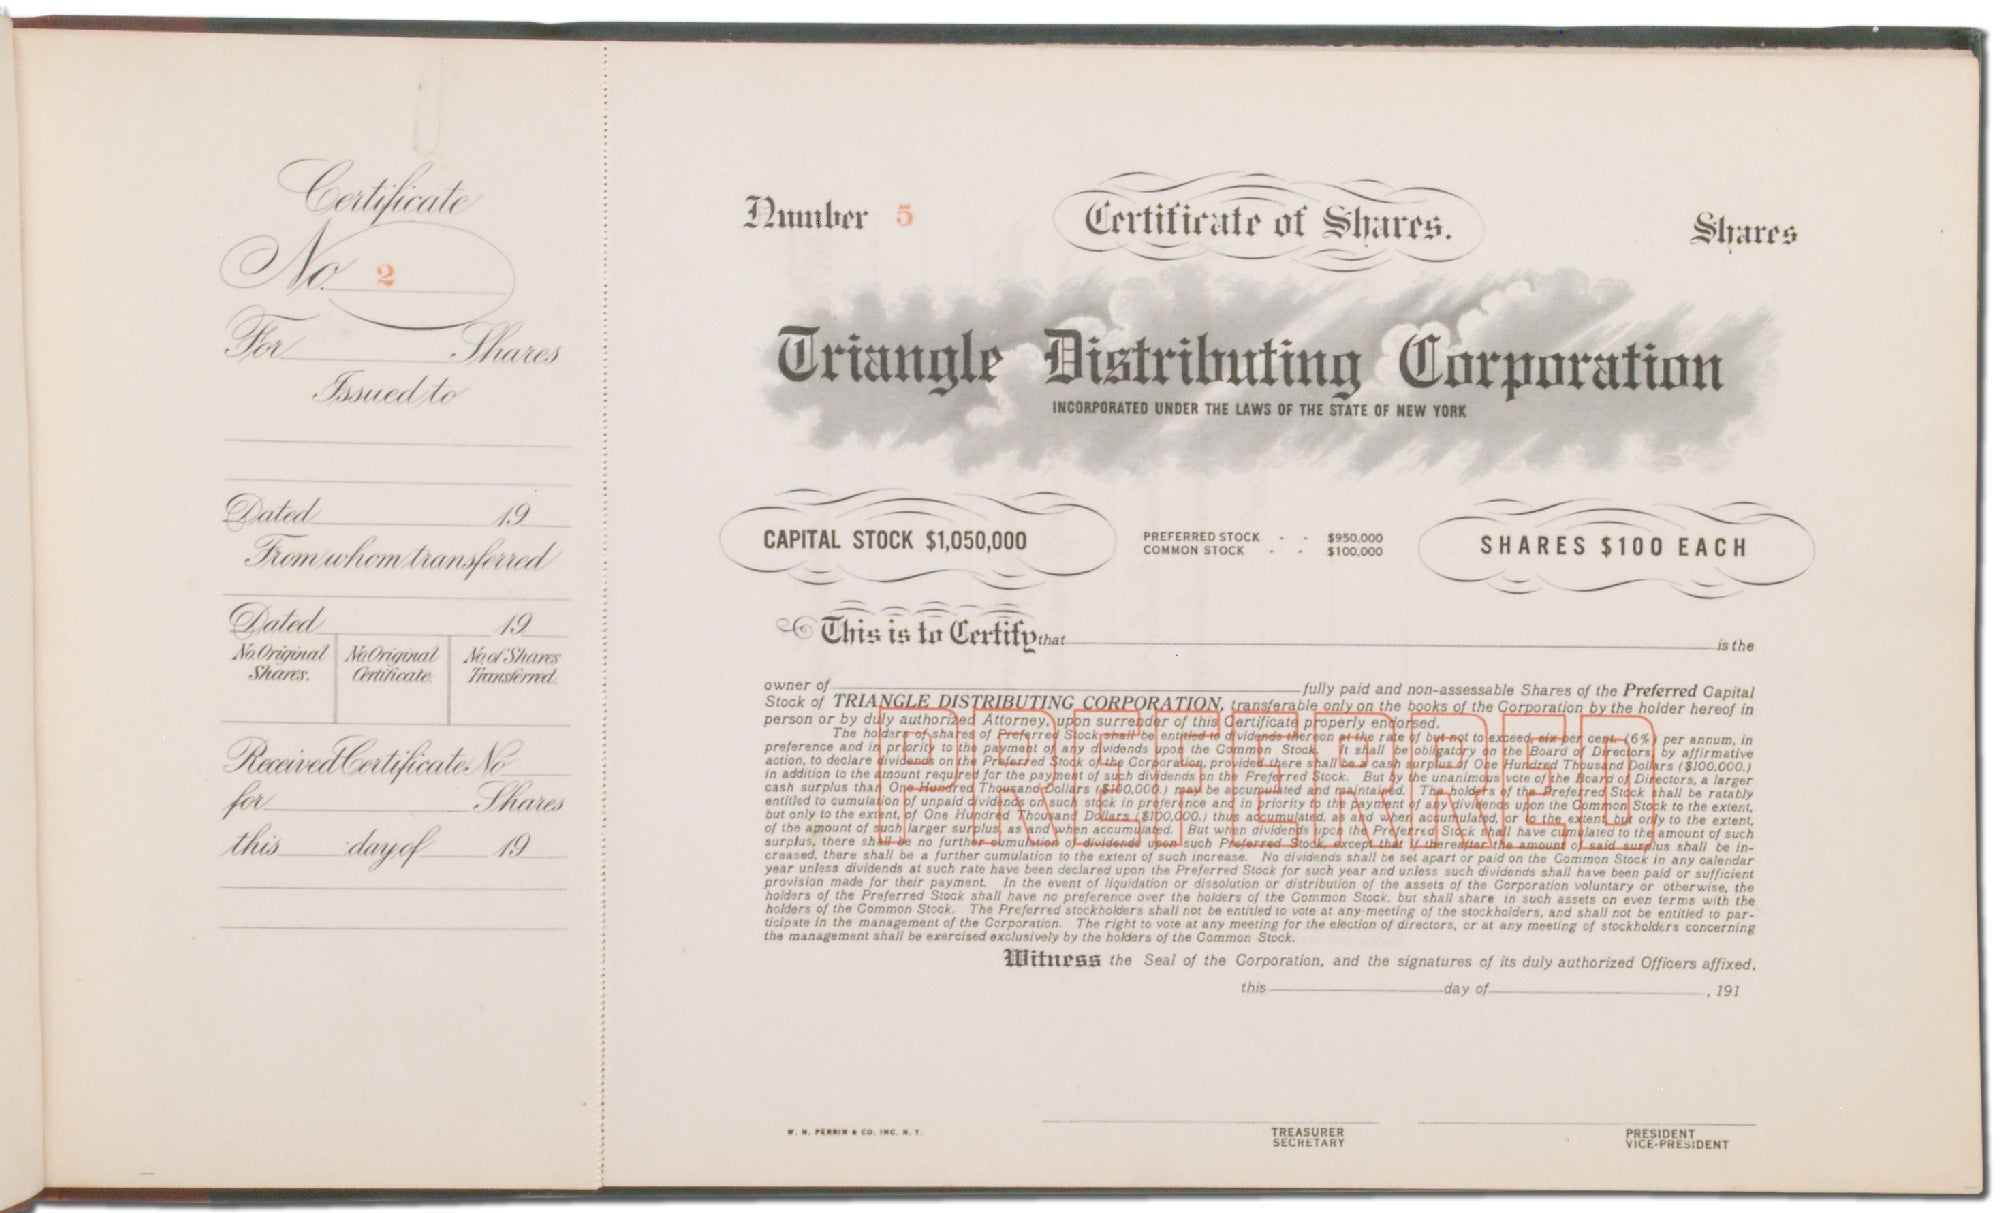 Certificate
No. 2
For Shares
Issued to
Dated 19
From whom transferred
Dated 19
No. Original Shares. No. Original Certificate. No. of Shares Transferred.
Received Certificate No
for Shares
this day of 19
Number 5 Certificate of Shares. Shares
Triangle Distributing Corporation
INCORPORATED UNDER THE LAWS OF THE STATE OF NEW YORK
CAPITAL STOCK $1,050,000
PREFERRED STOCK - - $950,000
COMMON STOCK - - $100,000
SHARES $100 EACH
This is to Certify that is the
owner of fully paid and non-assessable Shares of the Preferred Capital
Stock of TRIANGLE DISTRIBUTING CORPORATION, transferable only on the books of the Corporation by the holder hereof in
person or by duly authorized Attorney, upon surrender of this Certificate properly endorsed.
PREFERRED
The holders of shares of Preferred Stock shall be entitled to dividends thereon at the rate of but not to exceed, six per cent. (6%) per annum, in
preference and in priority to the payment of any dividends upon the Common Stock. It shall be obligatory on the Board of Directors, by affirmative
action, to declare dividends on the Preferred Stock of the Corporation, provided there shall be a cash surplus of One Hundred Thousand Dollars ($100,000.)
in addition to the amount required for the payment of such dividends on the Preferred Stock. But by the unanimous vote of the Board of Directors, a larger
cash surplus than One Hundred Thousand Dollars ($100,000.) may be accumulated and maintained. The holders of the Preferred Stock shall be ratably
entitled to cumulation of unpaid dividends on such stock in preference and in priority to the payment of any dividends upon the Common Stock to the extent,
but only to the extent, of One Hundred Thousand Dollars ($100,000.) thus accumulated, as and when accumulated, or to the extent but only to the extent,
of the amount of such larger surplus, as and when accumulated. But when dividends upon the Preferred Stock shall have cumulated to the amount of such
surplus, there shall be no further cumulation of dividends upon such Preferred Stock, except that if thereafter the amount of said surplus shall be in-
creased, there shall be a further cumulation to the extent of such increase. No dividends shall be set apart or paid on the Common Stock in any calendar
year unless dividends at such rate have been declared upon the Preferred Stock for such year and unless such dividends shall have been paid or sufficient
provision made for their payment. In the event of liquidation or dissolution or distribution of the assets of the Corporation voluntary or otherwise, the
holders of the Preferred Stock shall have no preference over the holders of the Common Stock, but shall share in such assets on even terms with the
holders of the Common Stock. The Preferred stockholders shall not be entitled to vote at any meeting of the stockholders, and shall not be entitled to par-
ticipate in the management of the Corporation. The right to vote at any meeting for the election of directors, or at any meeting of stockholders concerning
the management shall be exercised exclusively by the holders of the Common Stock.
Witness the Seal of the Corporation, and the signatures of its duly authorized Officers affixed,
this day of , 191
W. N. PERRIN & CO. INC. N. Y.
TREASURER
SECRETARY
PRESIDENT
VICE-PRESIDENT